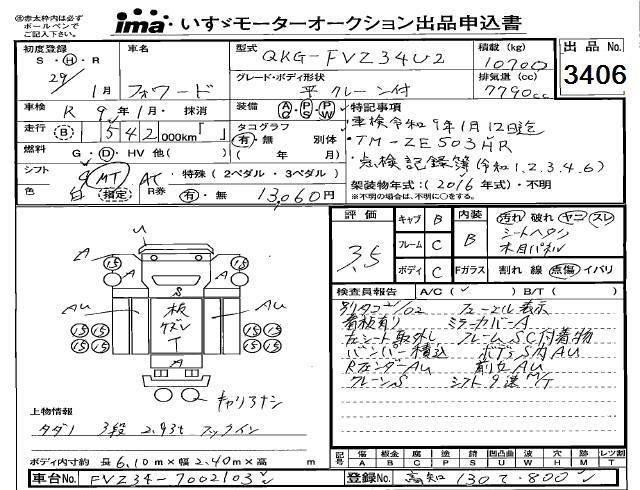 ※赤太枠内は必ず
ボールペンで
ご記入下さい。
ima いすゞモーターオークション出品申込書
初度登録 S・H・R 29/1月
車名 フォワード
型式 QKG-FVZ34U2
グレード・ボディ形状 平 クレーン付
積載 (kg) 10700
排気量 (cc) 7790cc
出品No. 3406
車検 R 9年1月・抹消
装備 AC PS PW
特記事項
・車検令和9年1月12日迄
・TM-ZE503HR
・点検記録簿(令和1.2.3.4.6)
走行 (B) 542 000km「 」
タコグラフ 有・無 別体
( 年 月)
燃料 G・D・HV 他( )
シフト 9 MT AT・特殊 (2ペダル・3ペダル)
架装物年式:(2016年式)・不明
※不明の場合は、不明に○をする。
色 白 指定 R券 有・無 13,060円
評価 3.5
キャブ B
フレーム C
ボディ C
内装 B
Fガラス
汚れ 破れ ヤコ スレ
シートヘタリ
木目パネル
割れ 線 点傷 イバリ
検査員報告 A/C( ) B/T( )
別タコ 1/02 フューエル表示
看板有り ミラーカバーA
左シート取外し フレームSC付着物
バンパー積込 ボデS内AU
RフェンダーAU 前立AU
クレーンS シフト9速M/T
U
A
A
15 15
S
AU
AU
板
ケズレ
T
15 15 15 15
15 15 15 15
A
キャリアナシ
上物情報
タダノ 3段 2.93t フックイン
ボディ内寸約 長 6.10m×幅 2.40m×高 m
記号 傷A 板金B 腐C 塗P 錆S 凹凸曲U 波W 穴H 跡M レツ割T
車台No. FVZ34-7002103
登録No. 高知 130 て 800